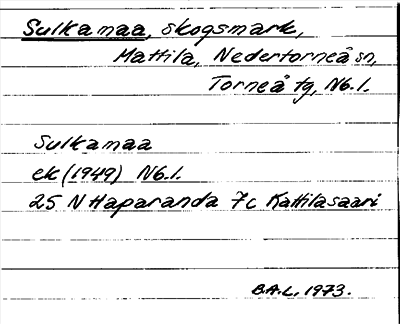 Sulkamaa, skogsmark,
Mattila, Nedertorneå sn,
Torneå tg, N6.1.
Sulkamaa
ek (1949) N6.1.
25 N Haparanda 7c Kattilasaari
B.A.L, 1973.